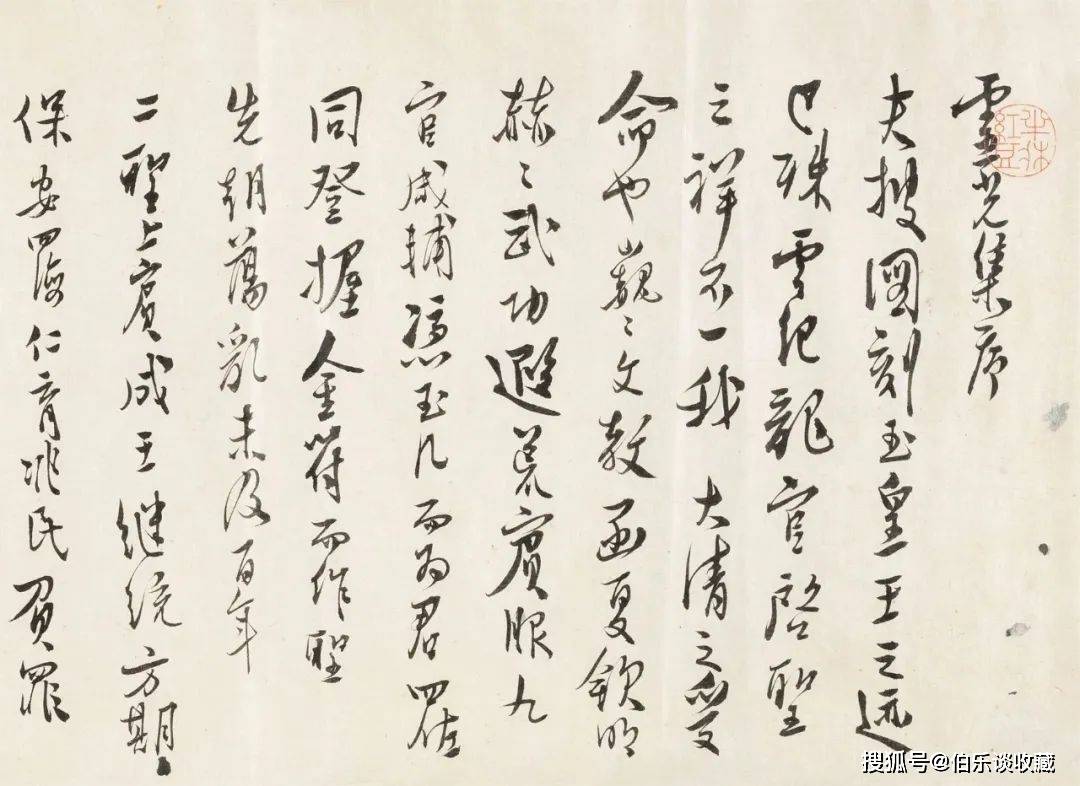 靈光集序
夫披圖刻玉皇王之迹
已殊雲紀龍官啓聖
之祥不一我大清之受
命也巍〻文教函夏欽明
赫〻武功遐荒賓服九
官咸輔憑玉几而為君四佐
同登握金符而作聖
先朝蕩亂未及百年
二聖上賓成王繼統方期
保安四海仁育兆民負罪
搜狐号@伯乐谈收藏